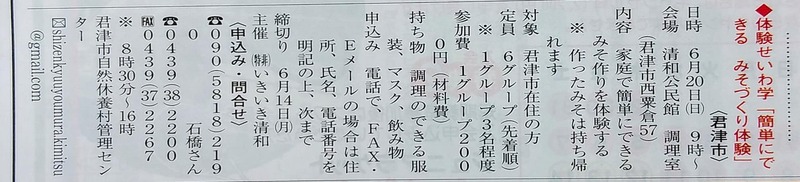 ◆体験せいわ学「簡単にで
きる みそづくり体験」
〈君津市〉
日時 6月20日㈰ 9時～
会場 清和公民館 調理室
(君津市西粟倉57)
内容 家庭で簡単にできる
みそ作りを体験する
※ 作ったみそは持ち帰
れます
対象 君津市在住の方
定員 6グループ(先着順)
※ 1グループ3名程度
参加費 1グループ200
0円(材料費)
持ち物 調理のできる服
装、マスク、飲み物
申込み 電話で、FAX・
Eメールの場合は住
所、氏名、電話番号を
明記の上、次まで
締切り 6月14日㈪
主催 ㈵いきいき清和
〈申込み・問合せ〉
☎090(5818)219
0 石橋さん
☎0439(38)2200
FAX0439(37)2267
※ 8時30分～16時
君津市自然休養村管理セン
ター
✉shizenkyuyoumura.kimitsu
@gmail.com